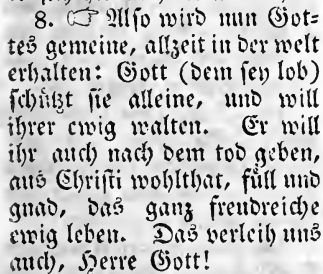 8. ☞ Also wird nun Got⸗
tes gemeine, allzeit in der welt
erhalten: Gott (dem sey lob)
schützt sie alleine, und will
ihrer ewig walten. Er will
ihr auch nach dem tod geben,
aus Christi wohlthat, füll und
gnad, das ganz freudreiche
ewig leben. Das verleih uns
auch, Herre Gott!